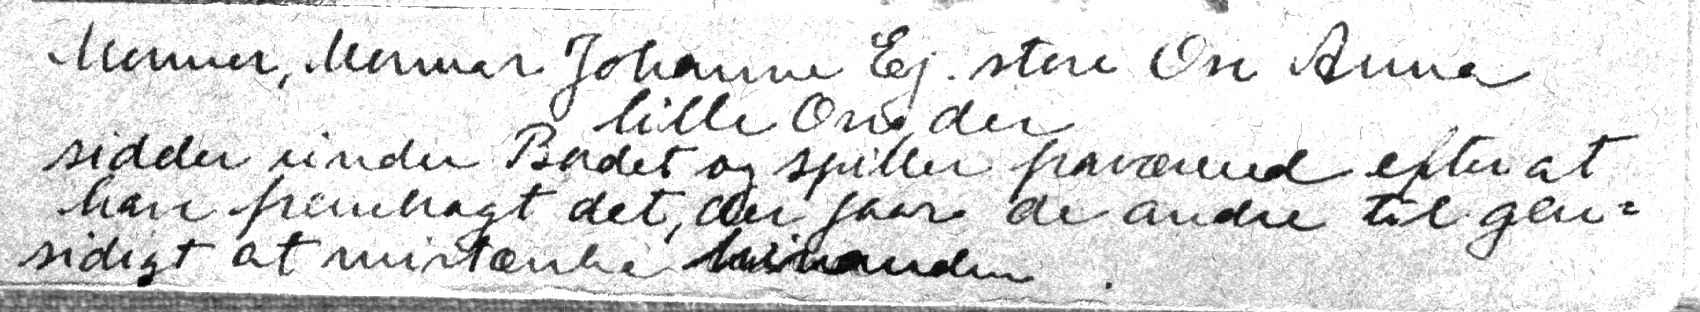 Mornier, Mornar Johanne Ej. store Ose Anna
lille Ose, der
sidder under Bordet og spiller fraværend efter at
have frembragt det, der faar de andre til gen=
sidigt at mistænke hinanden.